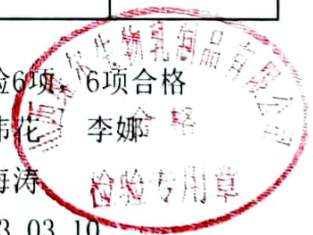 检6项，6项合格
花 李娜
海涛
3.03.10
生物乳制品有限公司
合格
检验专用章